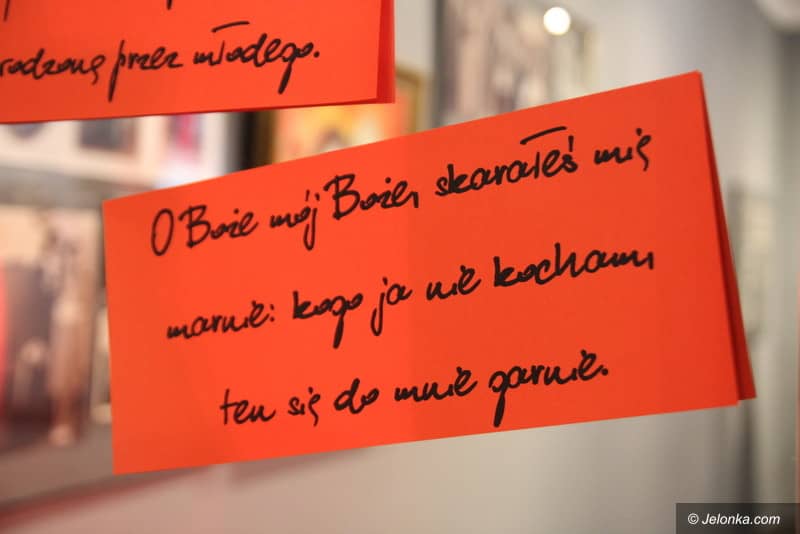 rodzonę przez młodego.
O Boże mój Boże, skarałeś mię
marnie: kogo ja nie kocham,
ten się do mnie garnie.
© Jelonka.com